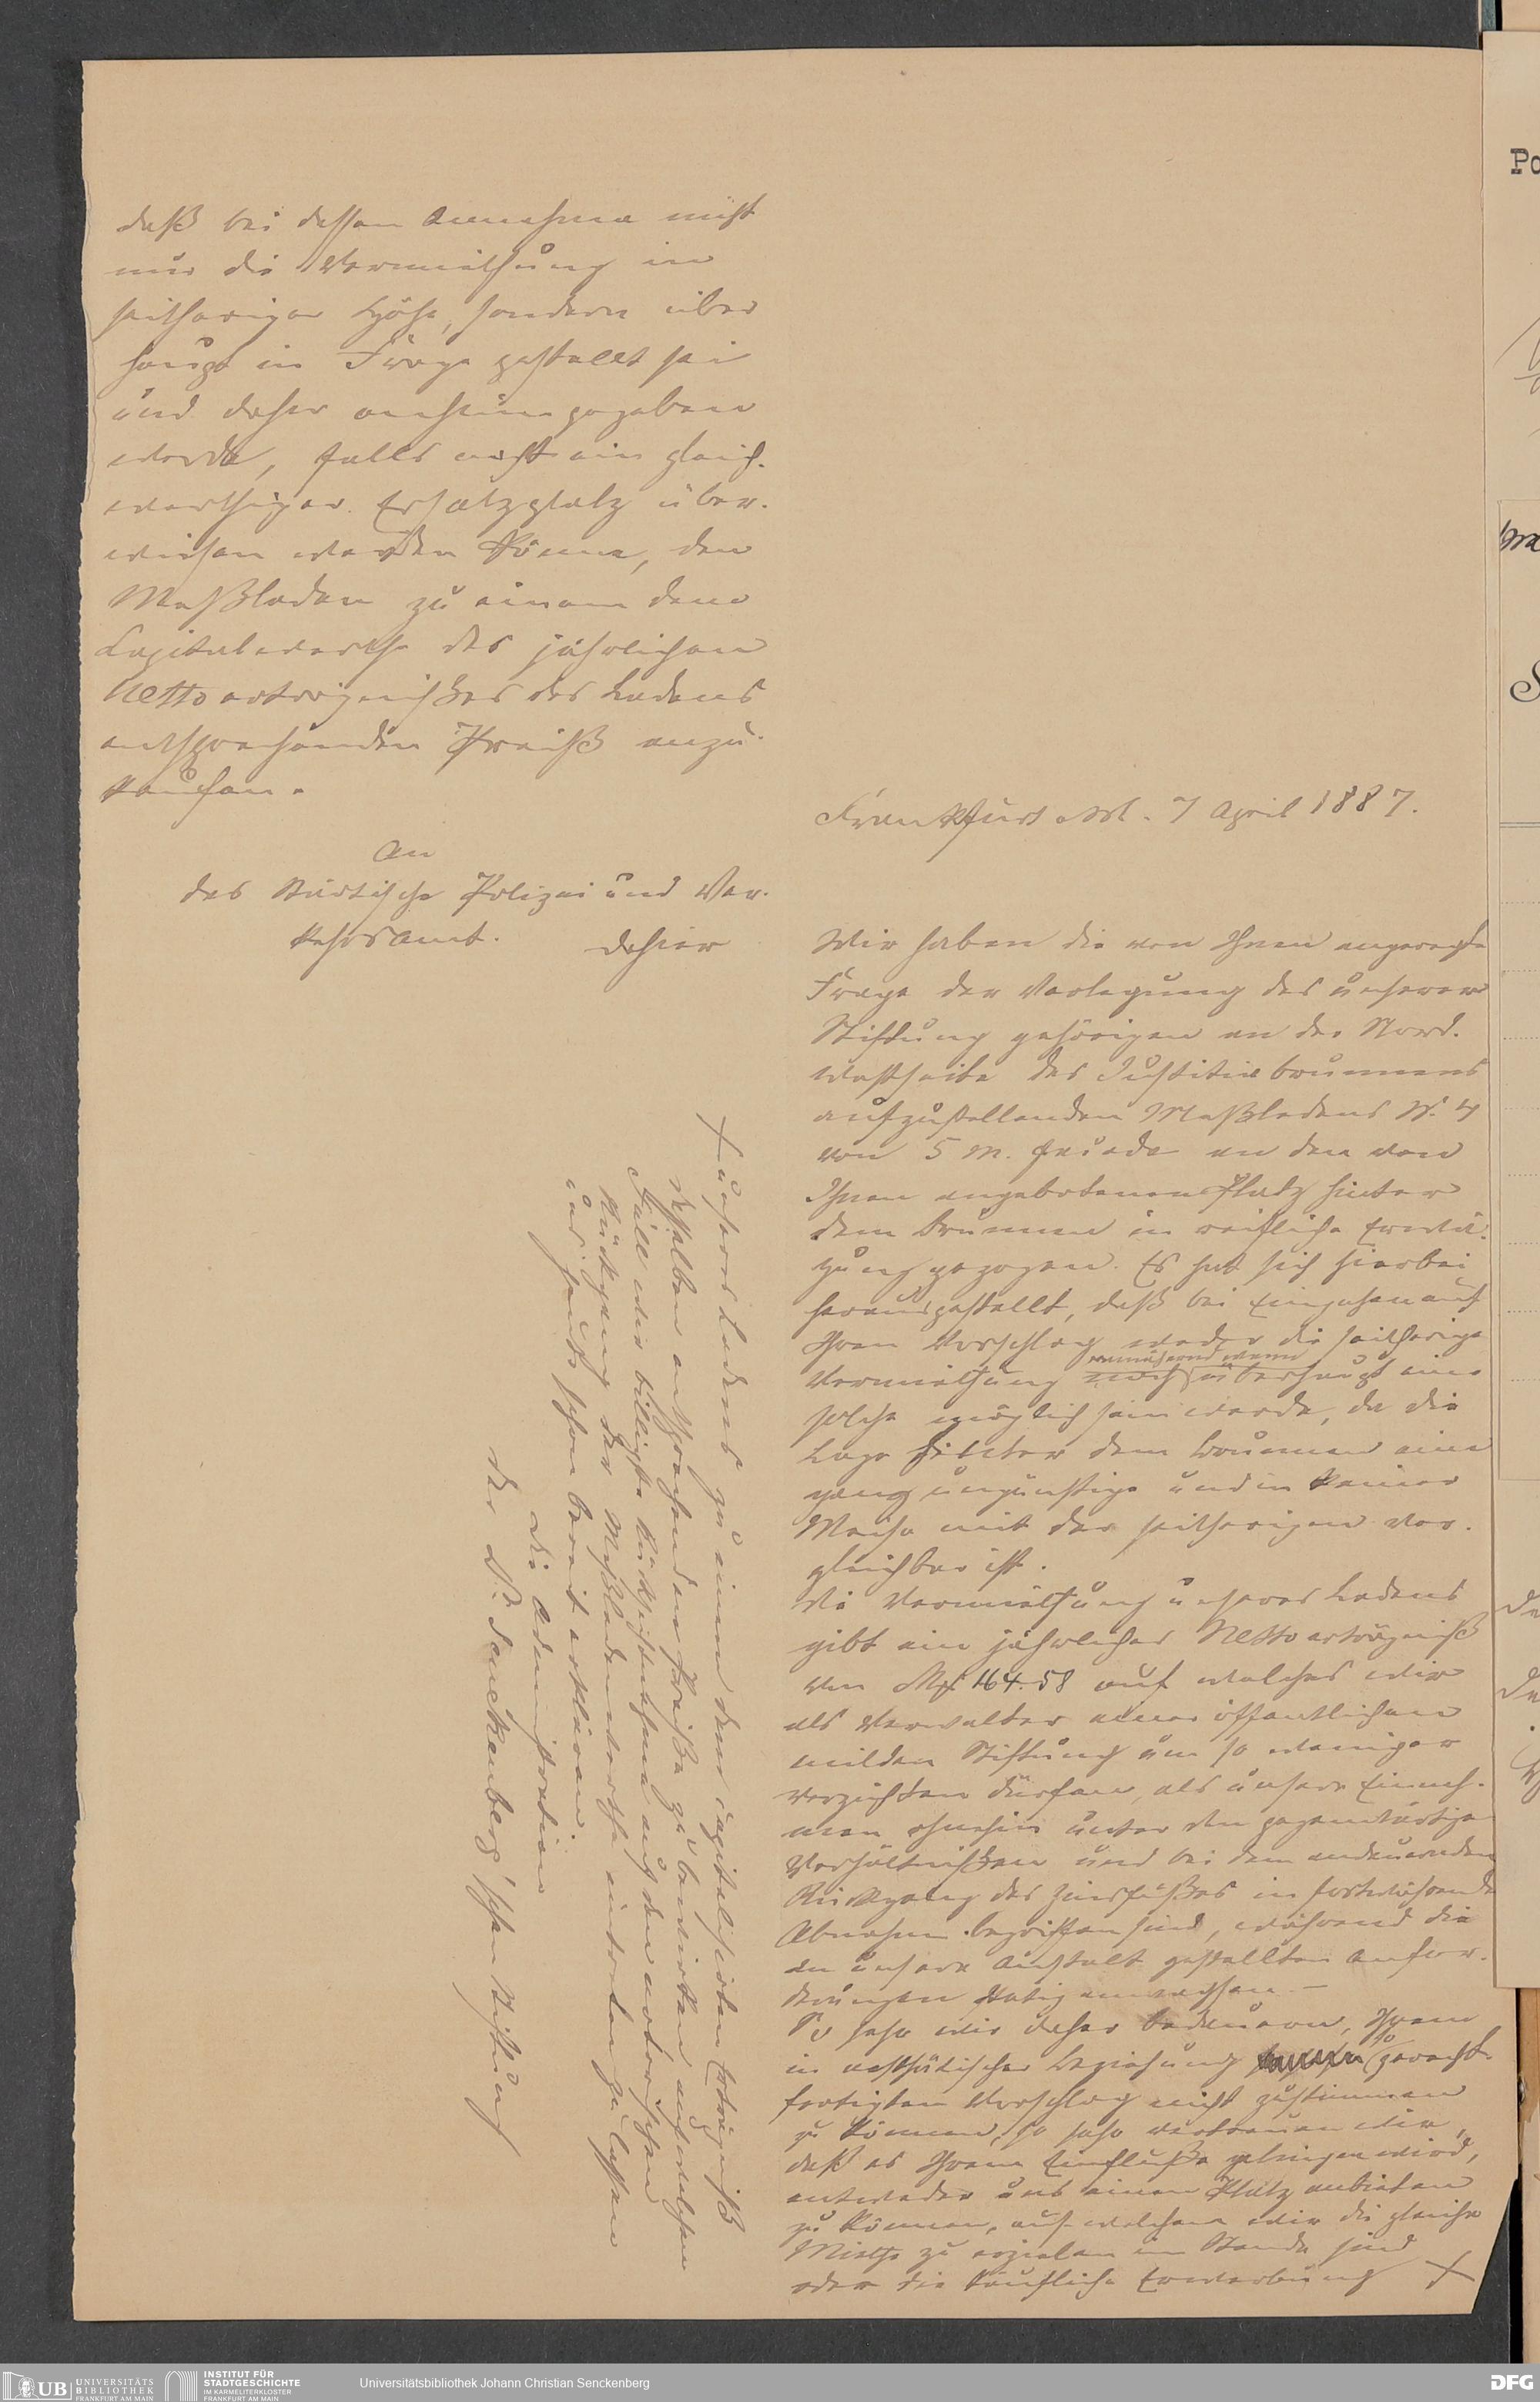 daß bei dessen Annahme nicht
nur die Vermiethung in
seitheriger Höhe, sondern über
haupt in Frage gestellt sei
und daher anheimgegeben
werde, falls nicht ein gleich-
werthiger Ersatzplatz über-
wiesen werden könne, den
Meßladen zu einem dem
Capitalwerthe des jährlichen
Nettoerträgnißes des Ladens
entsprechenden Preiß anzu-
kaufen.
An
das Städtische Polizei und Ver-
kehrsamt. dahier
Frankfurt a/M. 7 April 1887.
Wir haben die von Ihnen angeregte
Frage der Verlegung des unserer
Stiftung gehörigen an der Nord-
westseite des Justitiabrunnens
aufzustellenden Meßladens N. 4
von 5 M. an den von
Ihnen angebotenen Platz hinter
dem Brunnen in reifliche Erwä-
gung gezogen. Es hat sich hierbei
herausgestellt, daß bei Eingehen auf
Ihren Vorschlag weder die seitherige
annähernd wenn
Vermiethung noch überhaupt eine
solche möglich sein werde, da die
Lage hinter dem Brunnen eine
ganz ungünstige und in keiner
Weise mit der seitherigen ver-
gleichbar ist.
Die Vermiethung unseres Ladens
gibt ein jährliches Nettoerträgniß
von Mk 164.58 auf welches wir
als Verwalter einer öffentlichen
milden Stiftung um so weniger
verzichten dürfen, als unsere Einnah-
men ohnehin unter den gegenwärtigen
Verhältnißen und bei dem andauernden
Rückgang des Zinsfußes in fortwährender
Abnahme begriffen sind, während die
an unsere Anstalt gestellten Anfor-
derungen stetig anwachsen. –
So sehr wir daher bedauern, Ihrem
in aesthätischer Beziehung so gerecht-
fertigten Vorschlag nicht zustimmen
zu können, so sehr vertrauen wir,
daß es Ihrem Einfluße gelingen wird,
entweder uns einen Platz anbieten
zu können, auf welchem wir die gleiche
Miethe zu erzielen im Stande sind
oder die käufliche Erwerbung X
X unseres Ladens zu einem dem capitalisirten Erträgniß
desselben entsprechenden Preiße zu bewirken auf welchen
Fall wir billigste Rücksichtnahme auf den
Rückgang der Meßladenwerthe eintreten zu lassen
uns schon bereit erklären.
Die Administration
der Dr. Senckenberg'schen Stiftung
Universitätsbibliothek Johann Christian Senckenberg
UB UNIVERSITÄTS
BIBLIOTHEK
FRANKFURT AM MAIN
INSTITUT FÜR
STADTGESCHICHTE
IM KARMELITERKLOSTER
FRANKFURT AM MAIN
DFG